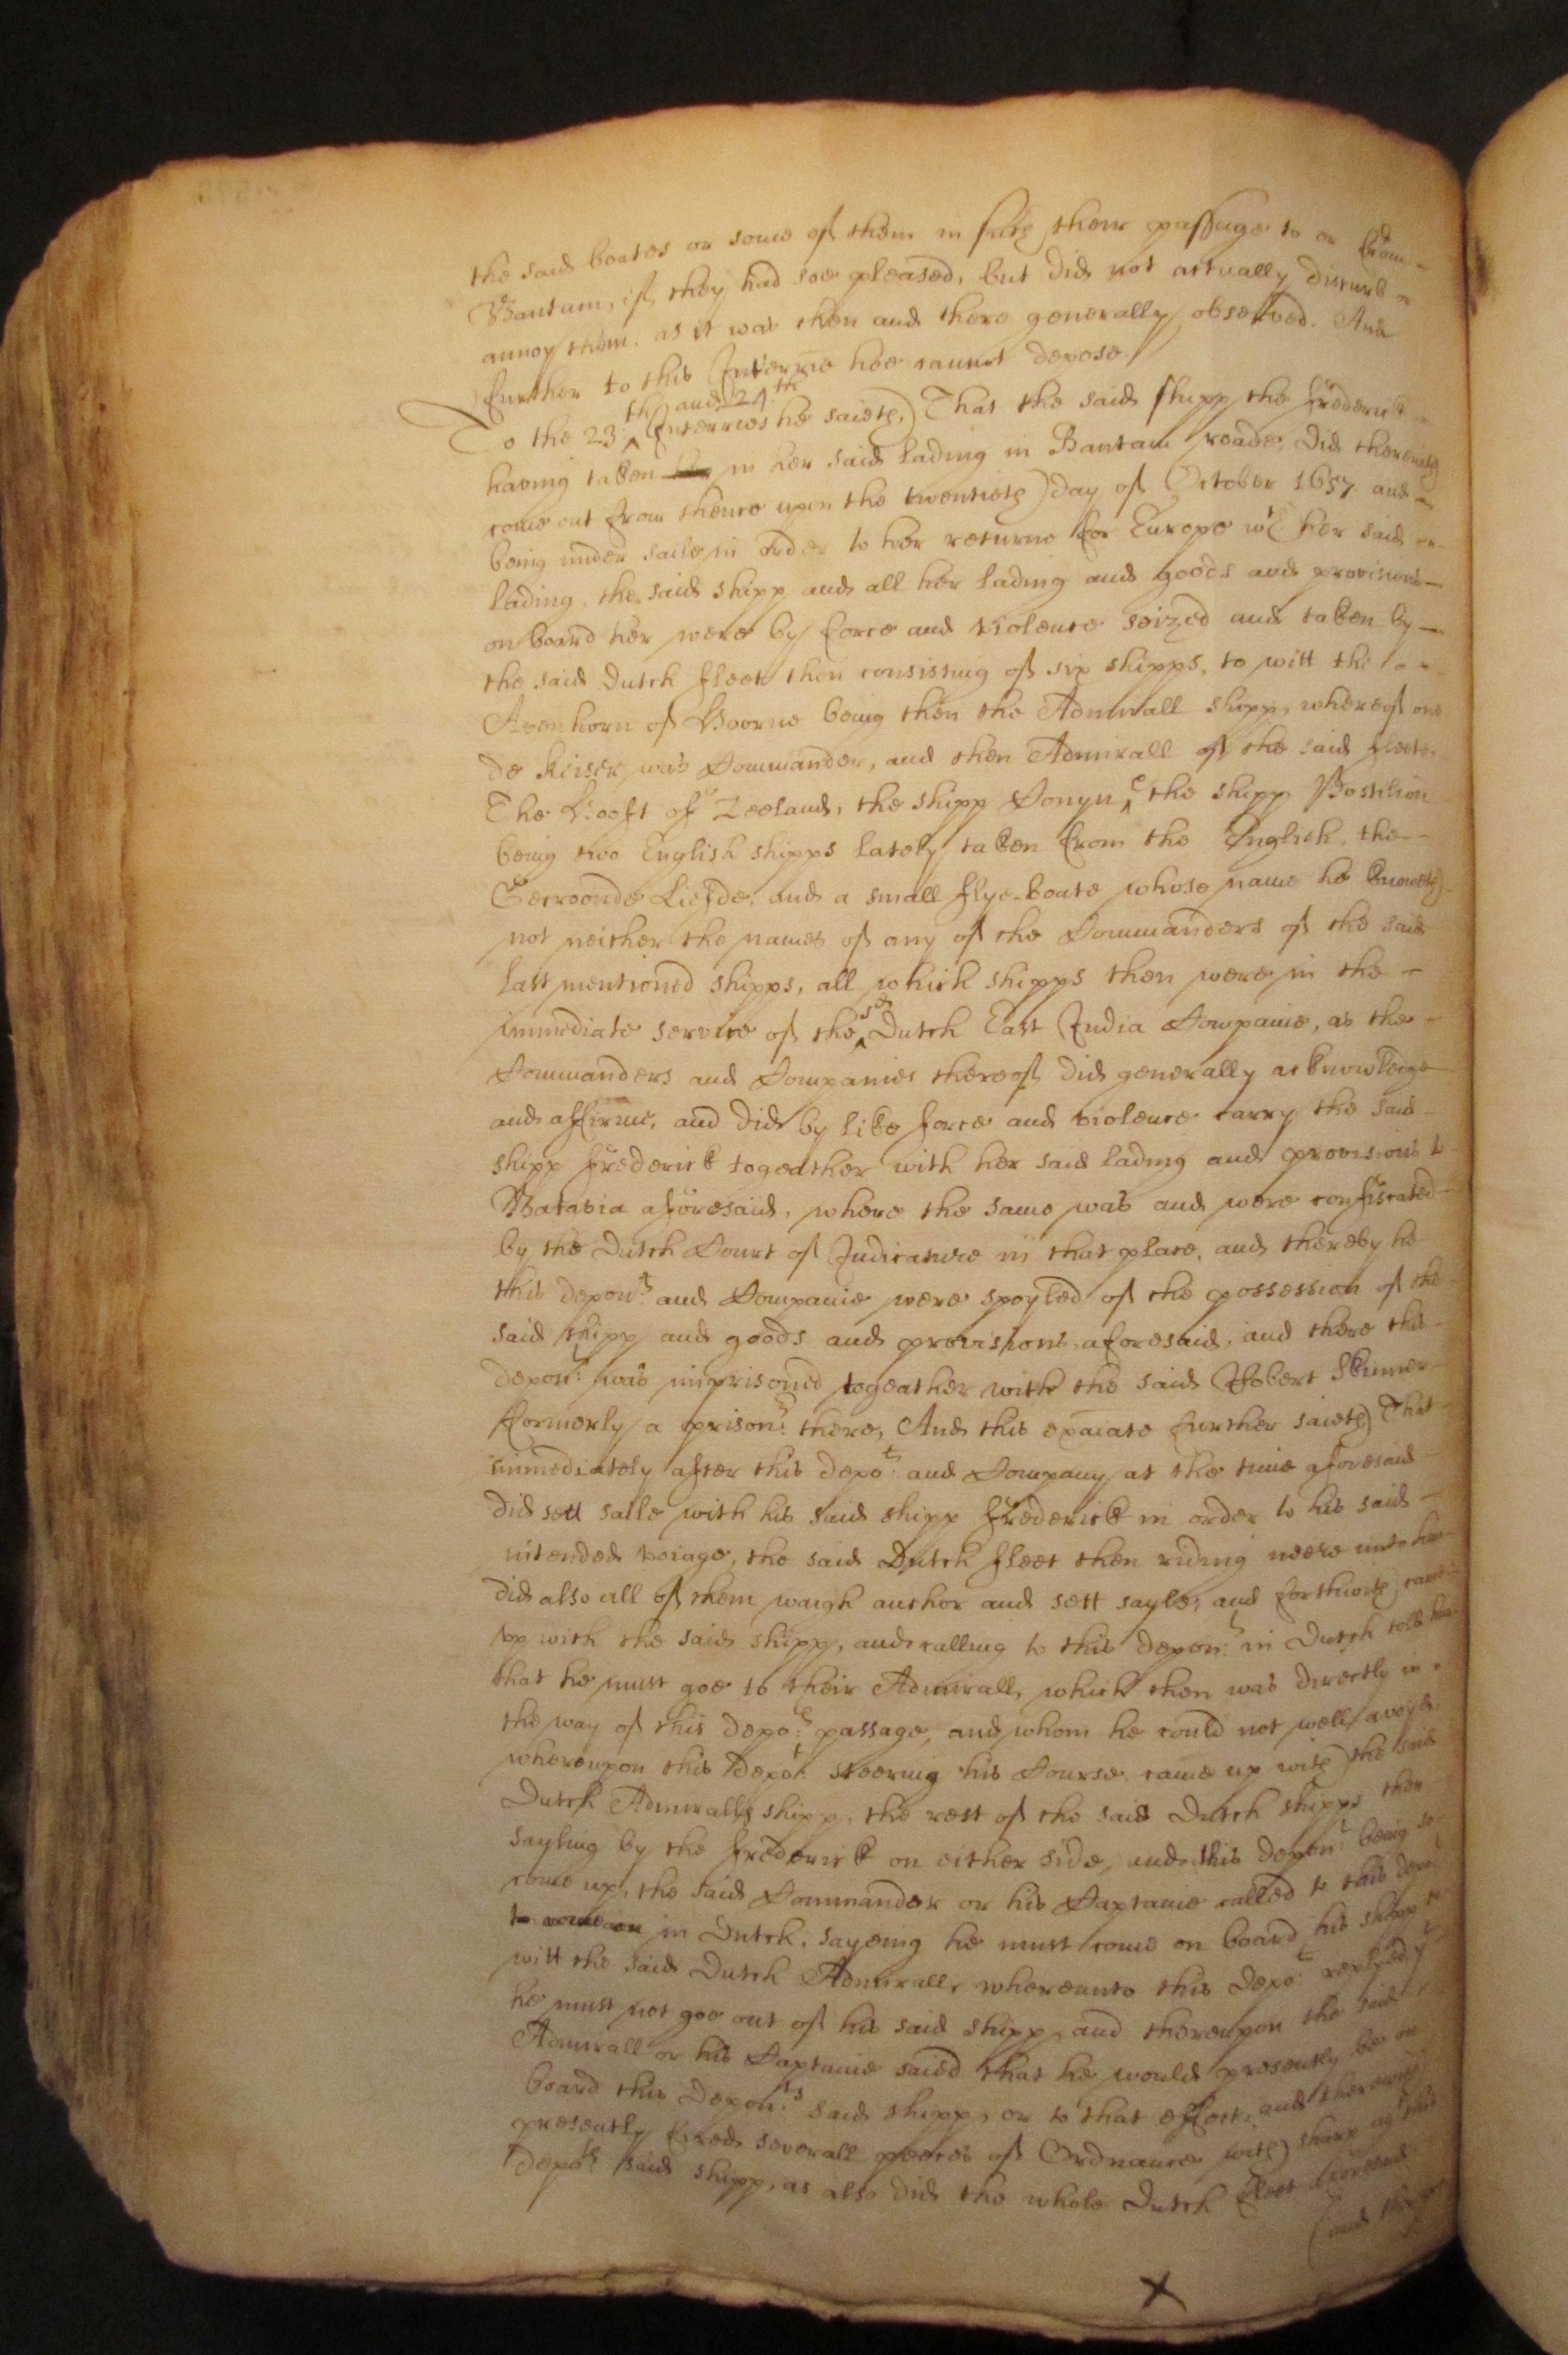 the said boates or some of them in such their passage to or from
Bantam, if they had soe pleased, but did not actually disturb or
annoy them. as it was then and there generally observed. And
further to this Interrie hee cannot depose.
To the 23th and 24th Interries he saieth, That the said shipp the Frederick
having taken in her said lading in Bantam roade, did therewith
come out from thence upon the twentieth day of October 1657 and
being under saile in order to her returne for Europe wth her said
lading, the said shipp and all her lading and goods and provisions
on board her were by force and violence seized and taken by
the said Dutch fleet then consisting of six shipps, to witt the
Avenhorn of Hoorne being then the Admirall shipp, whereof one
de Keiser was Commander, and then Admirall of the said fleete.
The Hooft of Zeeland, the shipp Conyn & the shipp Postilion
being two English shipps lately taken from the English, the
Gecroonde Liefde, and a small flye-boate whose name he knoweth
not neither the names of any of the Commanders of the said
last mentioned shipps, all which shipps then were in the
immediate service of the sd Dutch East India Companie, as the
Commanders and Companies thereof did generally acknowledge
and affirme, and did by like force and violence carry the said
shipp Frederick togeather with her said lading and provisions to
Batavia aforesaid, where the same was and were confiscated
by the Dutch Court of Judicature in that place, and thereby he
this depont and Companie were spoyled of the possession of the
said shipp and goods and provisions aforesaid, and there this
depont was imprisoned togeather with the said Robert Skinner
formerly a prisonr there, And this exaiate further saieth That
immediately after this depot and Company at the time aforesaid
did sett saile with his said shipp Frederick in order to his said
intended voiage, the said Dutch fleet then riding neere unto him
did also all of them waigh anchor and sett sayle, and forthwith came
up with the said shipp, and calling to this depont in Dutch told him
that he must goe to their Admirall, which then was directly in
the way of this depots passage, and whom he could not well avoyde
whereupon this depot steering his Course came up with the said
Dutch Admiralls shipp, the rest of the said Dutch shipps then
sayling by the Frederick on either side, and this depont being so
come up, the said Commander or his Captaine called to this depot
in Dutch, sayeing he must come on board his shipp to
witt the said Dutch Admirall, whereunto this depot replyed yt
he must not goe out of his said shipp, and thereupon the said
Admirall or his Captaine saied that he would presently bee on
board this deponts said shipp, or to that effect, and therewith
presently fired severall peeces of Ordnance with sharp agt this
depots said shipp, as also did the whole Dutch fleet aforesaid